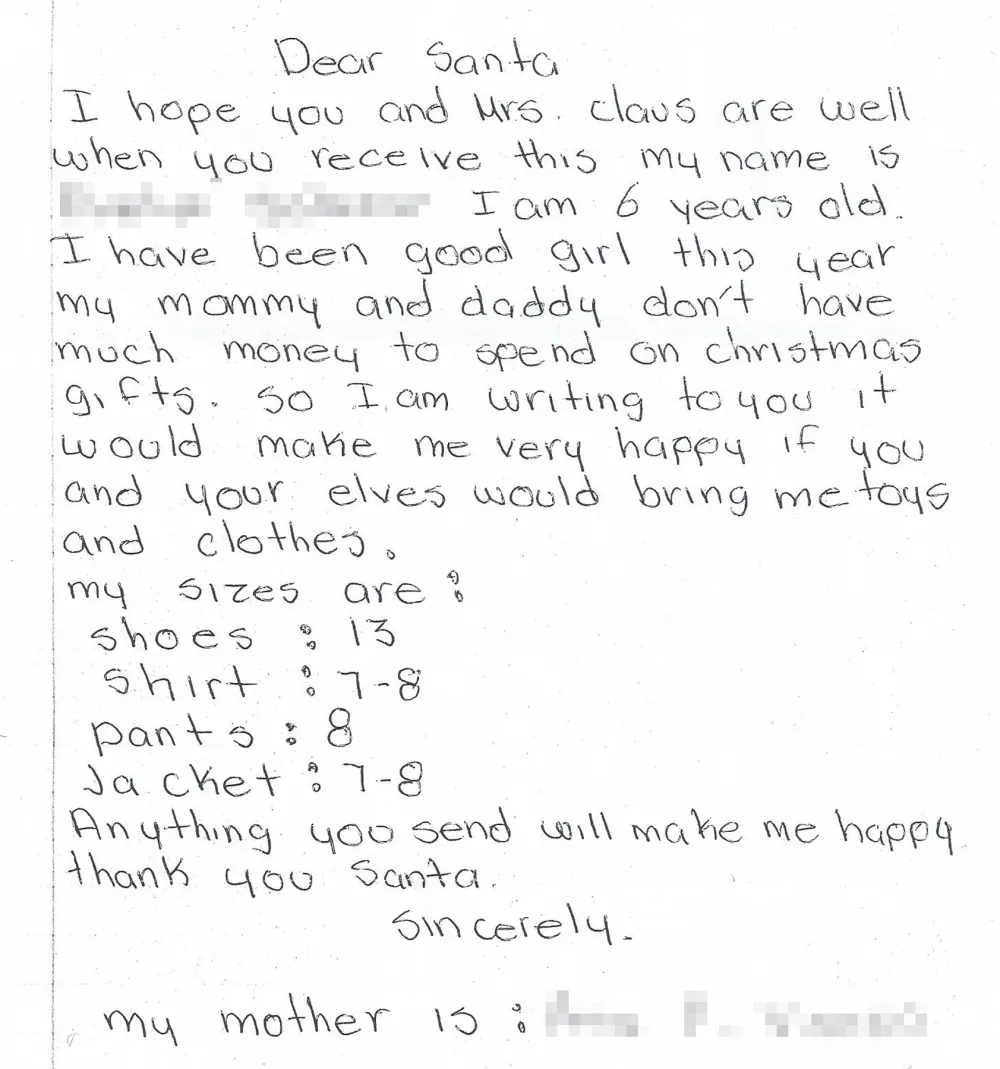 Dear Santa
I hope you and Mrs. claus are well
when you receive this my name is
I am 6 years old.
I have been good girl this year
my mommy and daddy don't have
much money to spend on christmas
gifts. so I am writing to you it
would make me very happy if you
and your elves would bring me toys
and clothes.
my sizes are :
shoes : 13
shirt : 7-8
pants : 8
Jacket : 7-8
Anything you send will make me happy
thank you Santa.
Sincerely.
my mother is :